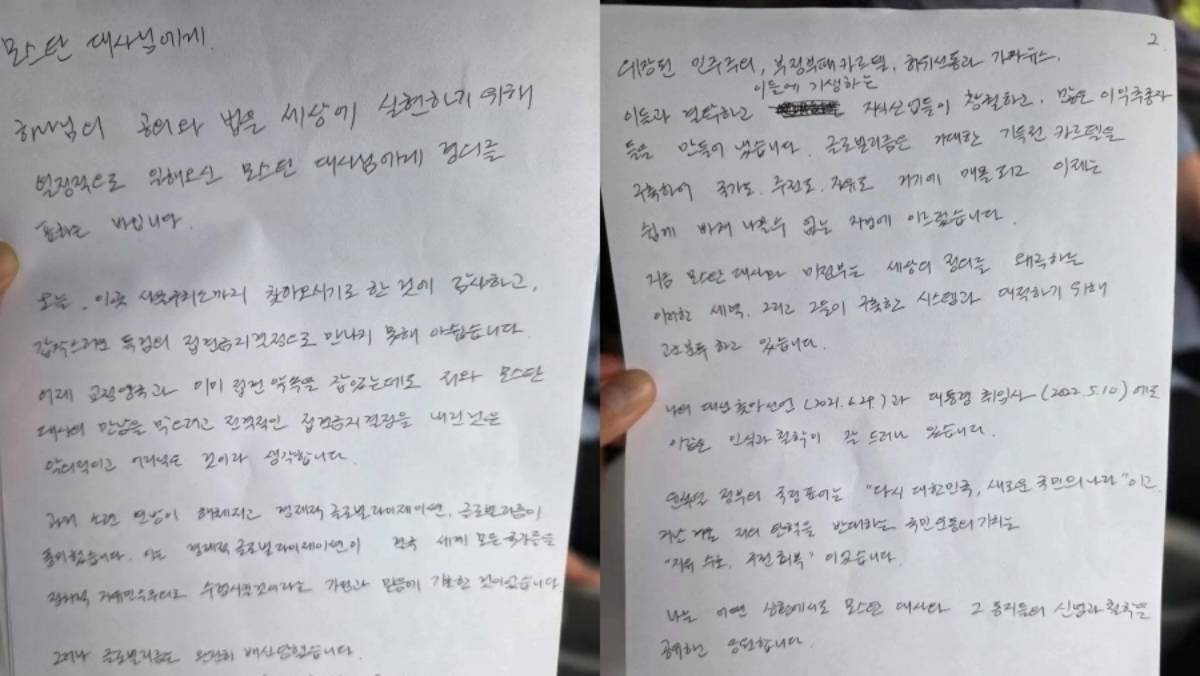 모스탄 대사님에게.
하나님의 공의와 법을 세상에 실현하기 위해
열정적으로 일해오신 모스탄 대사님에게 경의를
표하는 바입니다.
오늘, 이곳 서울구치소까지 찾아오시기로 한 것에 감사하고,
갑작스러운 특검의 접견금지결정으로 만나지 못해 아쉽습니다.
어제 교정당국과 이미 접견 약속을 잡았는데도 저와 모스탄
대사의 만남을 막으려고 전격적인 접견금지결정을 내린 것은
악의적이고 어리석은 것이라 생각합니다.
과거 소련 연방이 해체되고 경제적 글로벌라이제이션, 글로벌리즘이
풍미했습니다. 이는 경제적 글로벌라이제이션이 전국 세계 모든 국가들을
정치적 자유민주주의로 수렴시킬것이라는 가정과 믿음에 기초한 것이었습니다
그러나 글로벌리즘은 완전히 배신당했습니다.
2.
위장된 민주주의, 부정부패 카르텔, 허위선동과 가짜뉴스,
이들에 기생하는
이들과 결탁하고 지식산업들이 창궐하고, 많은 이익추종자
들을 만들어 냈습니다. 글로벌리즘은 거대한 기득권 카르텔을
구축하여 국가도, 주권도, 자유도 거기에 매몰되고 이제는
쉽게 빠져 나올수 없는 지경에 이르렀습니다.
지금 모스탄 대사와 미정부는 세상의 정의를 왜곡하는
이러한 세력, 그리고 그들이 구축한 시스템과 대적하기 위해
고군분투 하고 있습니다.
나의 대선 출마선언 (2021.6.29.)과 대통령 취임사 (2022.5.10)에도
이같은 인식과 철학이 잘 드러나 있습니다.
윤석열 정부의 국정표어는 "다시 대한민국, 새로운 국민의나라"이고
지난 겨울 저의 탄핵을 반대하는 국민운동의 기치는
"자유 수호, 주권 회복" 이었습니다.
나는 어떤 상황에서도 모스탄 대사와 그 동지들의 신념과 철학을
공유하고 응원합니다.